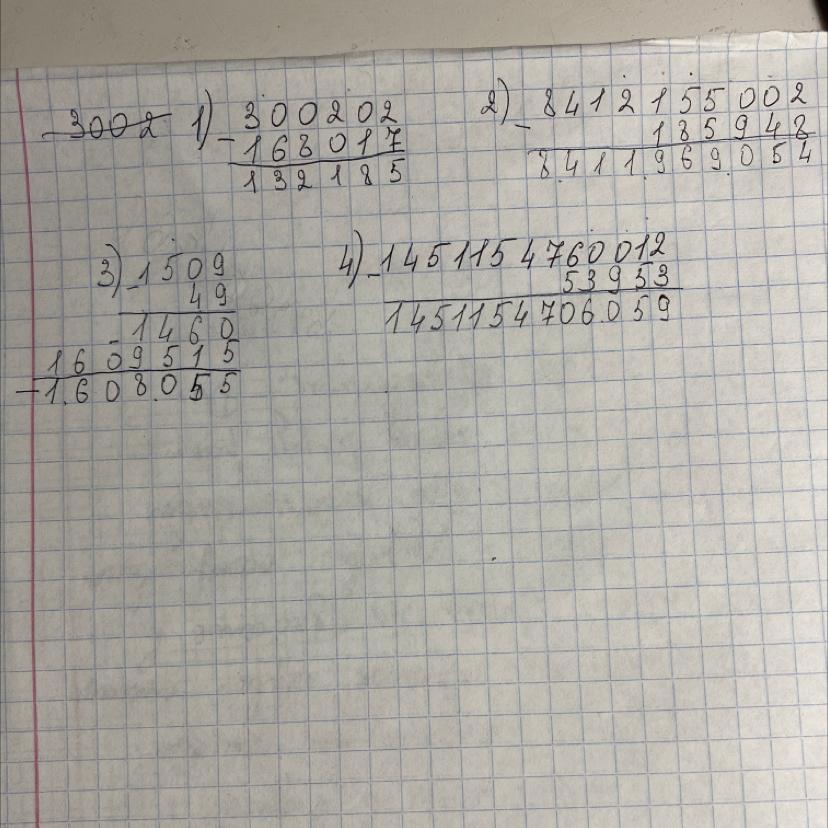 3002 1) 300202
- 168017
132185
2) 8412155002
- 185948
8.411.969.054
3) - 1509
49
- 1460
1609515
- 1.608.055
4) - 1451154760012
53953
1451154706.059